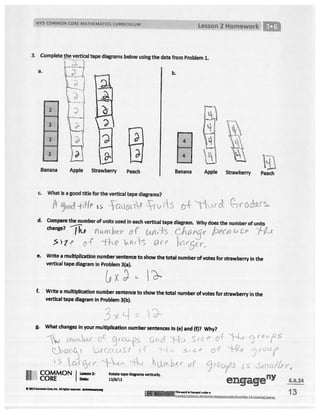 NYS COMMON CORE MATHEMATICS CURRICULUM
Lesson 2 Homework 3•6
3. Complete the vertical tape diagrams below using the data from Problem 1.
a.
b.
2
2
2
2
4
4
Banana Apple Strawberry Peach
Banana Apple Strawberry Peach
c. What is a good title for the vertical tape diagrams?
A good title is Favorite Fruits of Third Graders.
d. Compare the number of units used in each vertical tape diagram. Why does the number of units
change? The number of units change because the
size of the units are larger.
e. Write a multiplication number sentence to show the total number of votes for strawberry in the
vertical tape diagram in Problem 3(a).
6 x 2 = 12
f. Write a multiplication number sentence to show the total number of votes for strawberry in the
vertical tape diagram in Problem 3(b).
3 x 4 = 12
g. What changes in your multiplication number sentences in (e) and (f)? Why?
The number of groups and the size of the groups
change because if the size of the group
is larger then the number of groups is smaller.
COMMON CORE
Lesson 2:
Date:
Rotate tape diagrams vertically.
engage ny
13